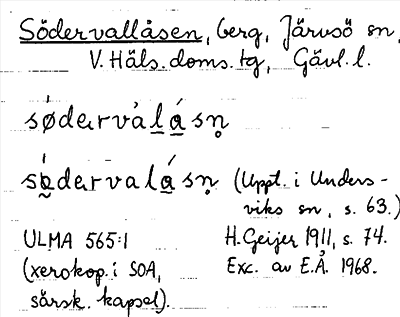 Södervallåsen, berg, Järvsö sn,
V. Häls. doms. tg, Gävl. l.
sǿdarvȧlásn̥
sǿdarvalásn̥ (Uppt. i Unders-
viks sn, s. 63.)
ULMA 565:1 H. Geijer 1911, s. 74.
(xerokop. i SOA, Exc. av E.Å. 1968.
särsk. kapsel).